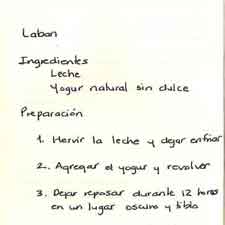 Laban
Ingredientes
Leche
Yogur natural sin dulce
Preparación
1. Hervir la leche y dejar enfriar
2. Agregar el yogur y revolver
3. Dejar reposar durante 12 horas
en un lugar oscuro y tibio